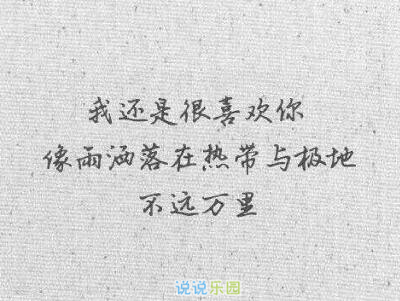 我还是很喜欢你
像雨洒落在热带与极地
不远万里
说说乐园